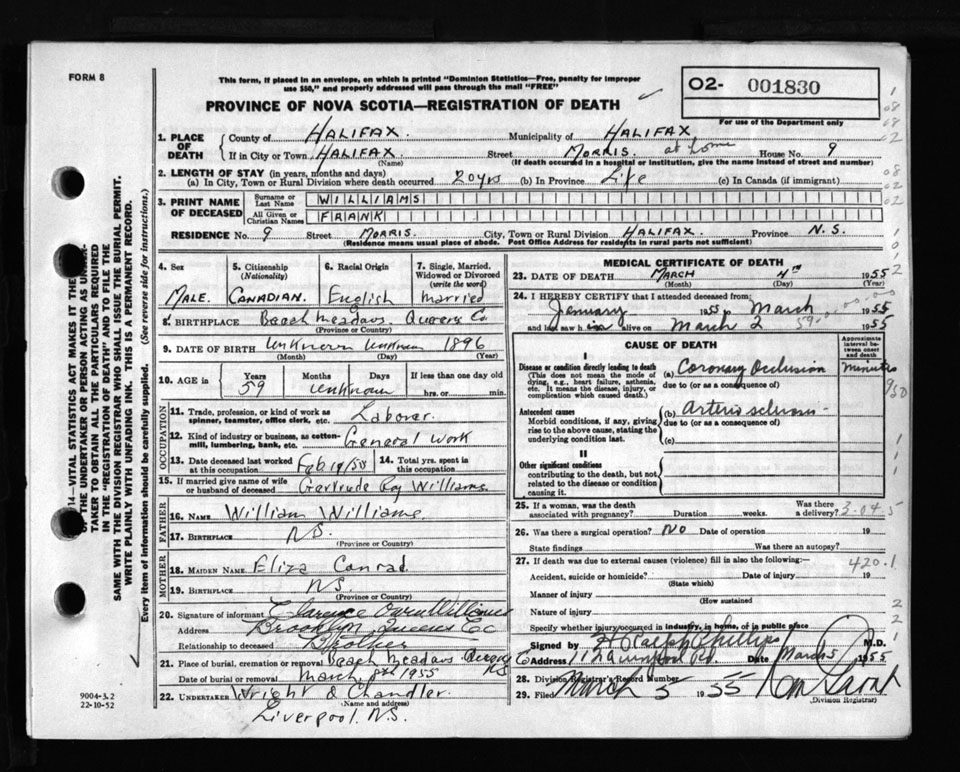 FORM 8
This form, if placed in an envelope, on which is printed "Dominion Statistics—Free, penalty for improper
use $50," and properly addressed will pass through the mail "FREE"
PROVINCE OF NOVA SCOTIA—REGISTRATION OF DEATH
02- 001830
For use of the Department only
1. PLACE OF DEATH
County of HALIFAX. Municipality of HALIFAX
If in City or Town HALIFAX. Street MORRIS. at home House No. 9
(Name) (If death occurred in a hospital or institution, give the name instead of street and number)
2. LENGTH OF STAY (in years, months and days)
(a) In City, Town or Rural Division where death occurred 20 yrs (b) In Province Life (c) In Canada (if immigrant)
3. PRINT NAME OF DECEASED
Surname or Last Name WILLIAMS
All Given or Christian Names FRANK
RESIDENCE No. 9 Street MORRIS. City, Town or Rural Division HALIFAX. Province N.S.
(Residence means usual place of abode. Post Office Address for residents in rural parts not sufficient)
4. Sex 5. Citizenship (Nationality) 6. Racial Origin 7. Single, Married, Widowed or Divorced (write the word)
MALE. CANADIAN. English married
8. BIRTHPLACE Beach meadows Queens Co
(Province or Country)
9. DATE OF BIRTH unknown unknown 1896
(Month) (Day) (Year)
10. AGE in Years Months Days If less than one day old
59 unknown hrs. or min.
OCCUPATION
11. Trade, profession, or kind of work as spinner, teamster, office clerk, etc. Laborer.
12. Kind of industry or business, as cotton-mill, lumbering, bank, etc. General work
13. Date deceased last worked at this occupation Feb 14. Total yrs. spent in this occupation
15. If married give name of wife or husband of deceased Gertrude Williams.
FATHER
16. NAME William Williams.
17. BIRTHPLACE N.S.
(Province or Country)
MOTHER
18. MAIDEN NAME Eliza Conrad
19. BIRTHPLACE N.S.
(Province or Country)
20. Signature of informant Clarence Owen Williams
Address Brooklyn Queens Co
Relationship to deceased Brother
21. Place of burial, cremation or removal Beach meadows Queens NS
Date of burial or removal March 1955
22. UNDERTAKER Wright & Chandler.
(Name and address)
Liverpool. N.S.
9004-3.2
22-10-52
MEDICAL CERTIFICATE OF DEATH
23. DATE OF DEATH MARCH 4th 1955
(Month) (Day)
24. I HEREBY CERTIFY that I attended deceased from
January 1955 to March 1955
and last saw h alive on March 2 1955
CAUSE OF DEATH
Approximate interval between onset and death
I
Disease or condition directly leading to death (This does not mean the mode of dying, e.g., heart failure, asthenia, etc. It means the disease, injury, or complication which caused death.)
(a) Coronary Occlusion minutes
due to (or as a consequence of)
Antecedent causes
Morbid conditions, if any, giving rise to the above cause, stating the underlying condition last.
(b) Arterio sclerosis
due to (or as a consequence of)
(c)
II
Other significant conditions
contributing to the death, but not related to the disease or condition causing it.
25. If a woman, was the death associated with pregnancy? Duration weeks. Was there a delivery?
26. Was there a surgical operation? No Date of operation 19
State findings Was there an autopsy?
27. If death was due to external causes (violence) fill in also the following:— 420.1
Accident, suicide or homicide? Date of injury 19
(State which)
Manner of injury
(How sustained)
Nature of injury
Specify whether injury occurred in industry, in home, or in public place
Signed by H Ralph Phillips M.D.
Address Date March 5 1955
28. Division Registrar's Record Number
29. Filed March 5 1955
(Division Registrar)
14—VITAL STATISTICS ACT MAKES IT THE
THE UNDERTAKER OR PERSON ACTING AS UNDER-
TAKER TO OBTAIN ALL THE PARTICULARS REQUIRED
IN THE "REGISTRATION OF DEATH" AND TO FILE THE
SAME WITH THE DIVISION REGISTRAR WHO SHALL ISSUE THE BURIAL PERMIT.
WRITE PLAINLY WITH UNFADING INK. THIS IS A PERMANENT RECORD.
Every item of information should be carefully supplied. (See reverse side for instructions.)